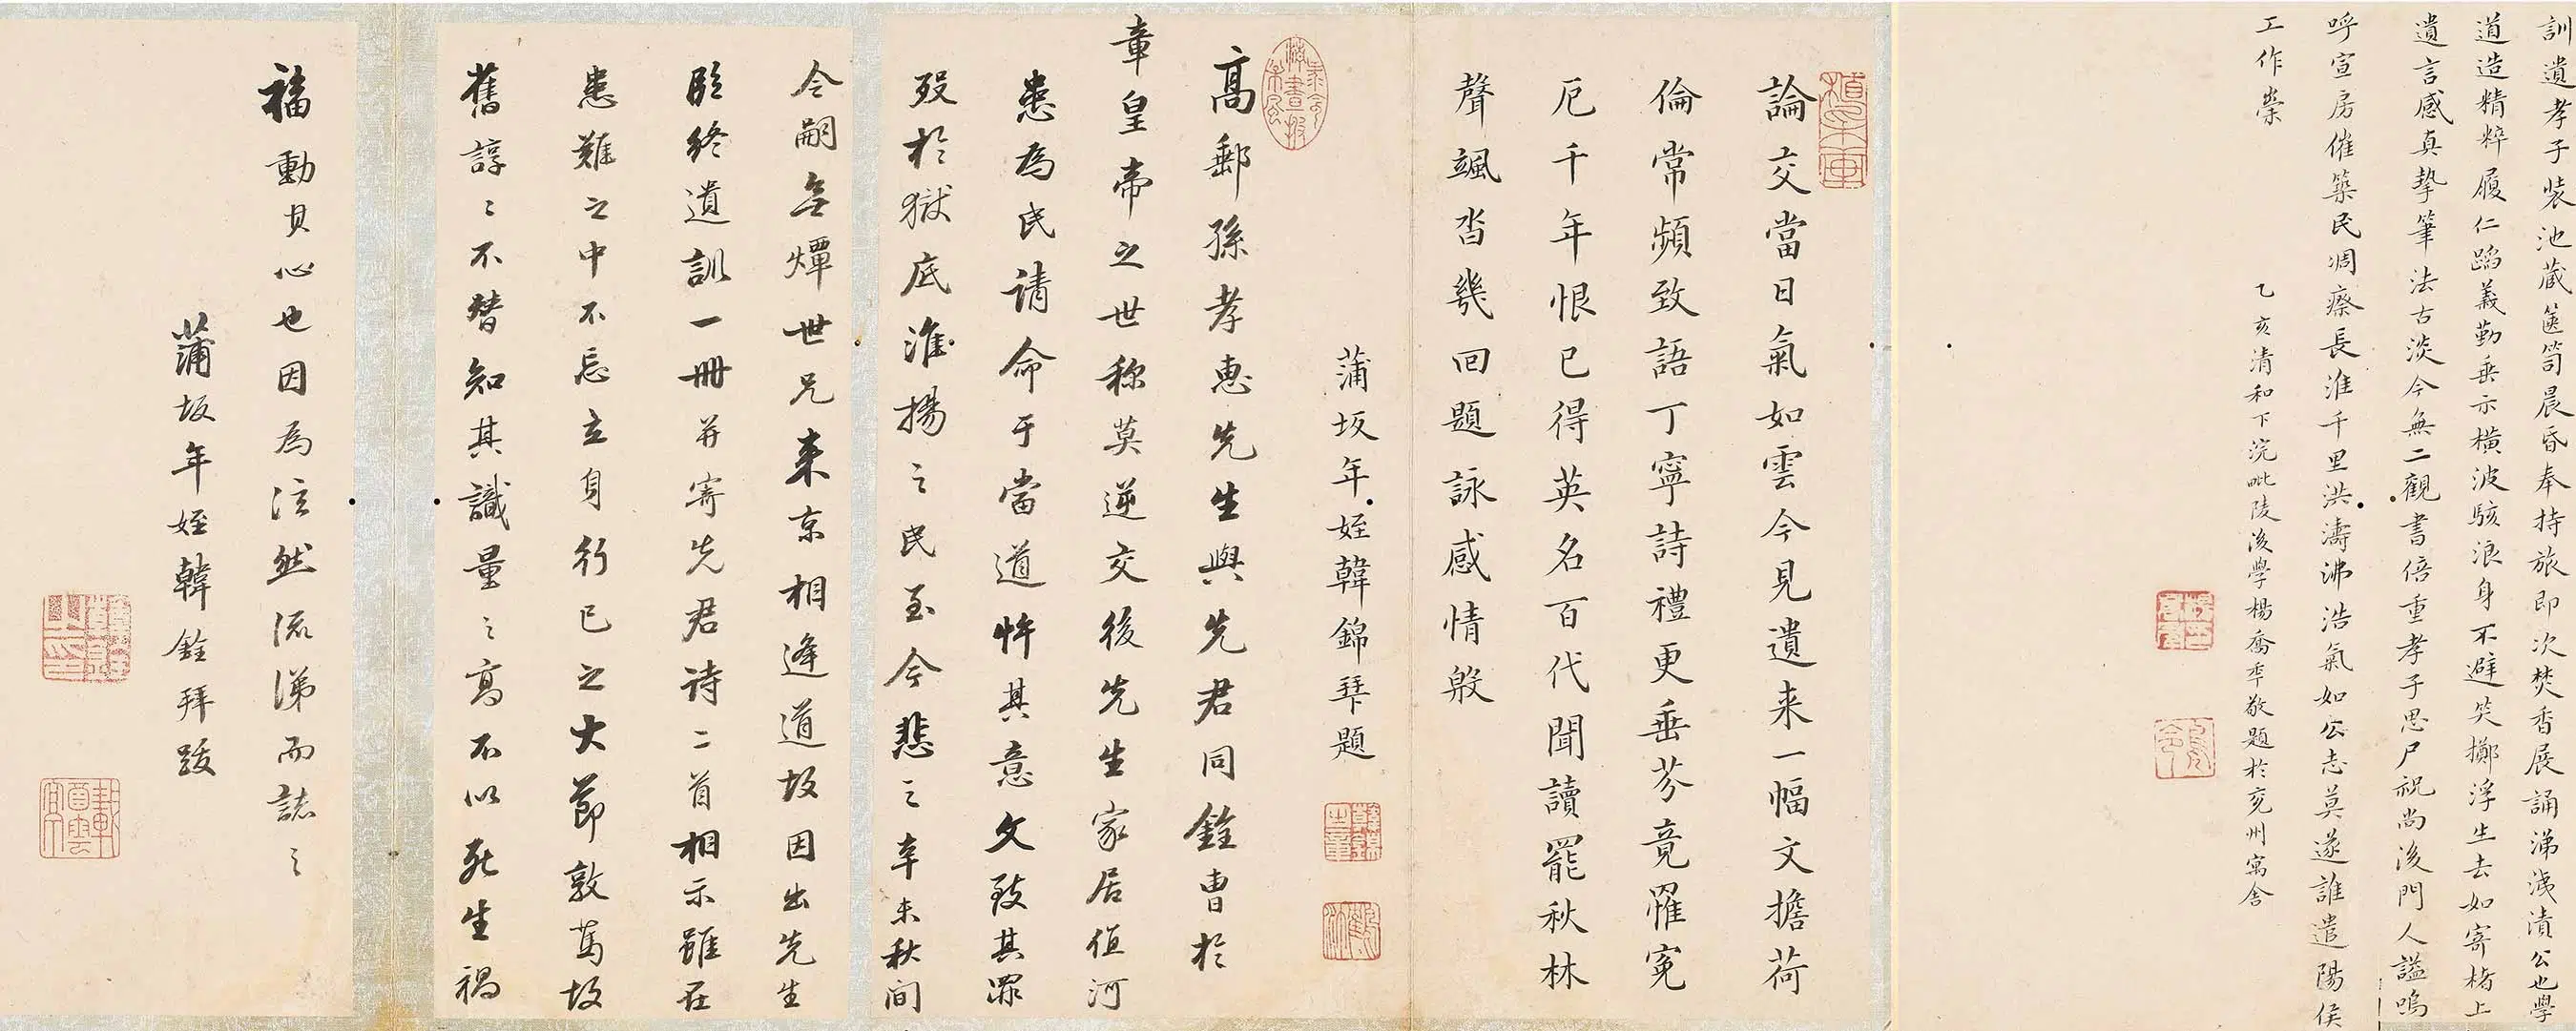 訓遺孝子裝池藏篋笥晨昏奉持旅即次焚香展誦涕洟漬公也學
道造精粹履仁蹈義勤垂示橫波駭浪身不避笑擲浮生去如寄楮上
遺言感真摯筆法古淡今無二觀書倍重孝子思尸祝尚後門人謚嗚
呼宣房催築民凋瘵長淮千里洪濤沸浩氣如公志莫遂誰遣陽侯
工作祟
乙亥清和下浣毗陵後學楊喬年敬題於兗州寓舍
論交當日氣如雲今見遺来一幅文擔荷
倫常頻致語丁寧詩禮更垂芬竟罹冤
厄千年恨已得英名百代聞讀罷秋林
聲颯沓幾回題詠感情殷
蒲坂年姪韓錦琴題
高郵孫孝惠先生與先君同銓曹於
章皇帝之世称莫逆交後先生家居值河
患為民请命于當道忤其意文致其罪
殁於獄底淮揚之民至今悲之辛未秋间
令嗣無燂世兄来京相逄道故因出先生
臨終遺訓一冊并寄先君诗二首相示雖在
患難之中不忘立身行已之大節敦萬故
舊諄〻不替知其識量〻高不以死生禍
福動其心也因為泫然流涕而誌之
蒲坂年姪韓銓拜跋